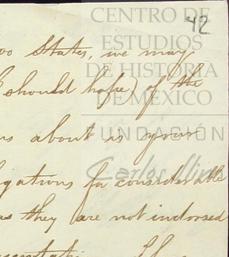 42
CENTRO DE
ESTUDIOS
DE HISTORIA
DE MÉXICO
FUNDACIÓN
Carlos Slim
States, we may
(I should hope) of the
about is your
for considerable
as they are not indorsed